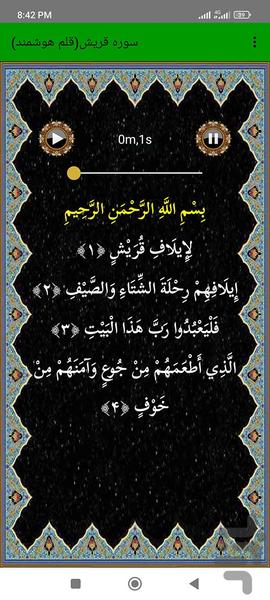 8:42 PM 4G 59
سوره قریش(قلم هوشمند)
0m,1s
بِسْمِ اللَّهِ الرَّحْمَنِ الرَّحِيمِ
لِإِيلَافِ قُرَيْشٍ ﴿۱﴾
إِيلَافِهِمْ رِحْلَةَ الشِّتَاءِ وَالصَّيْفِ ﴿۲﴾
فَلْيَعْبُدُوا رَبَّ هَذَا الْبَيْتِ ﴿۳﴾
الَّذِي أَطْعَمَهُمْ مِنْ جُوعٍ وَآمَنَهُمْ مِنْ
خَوْفٍ ﴿۴﴾